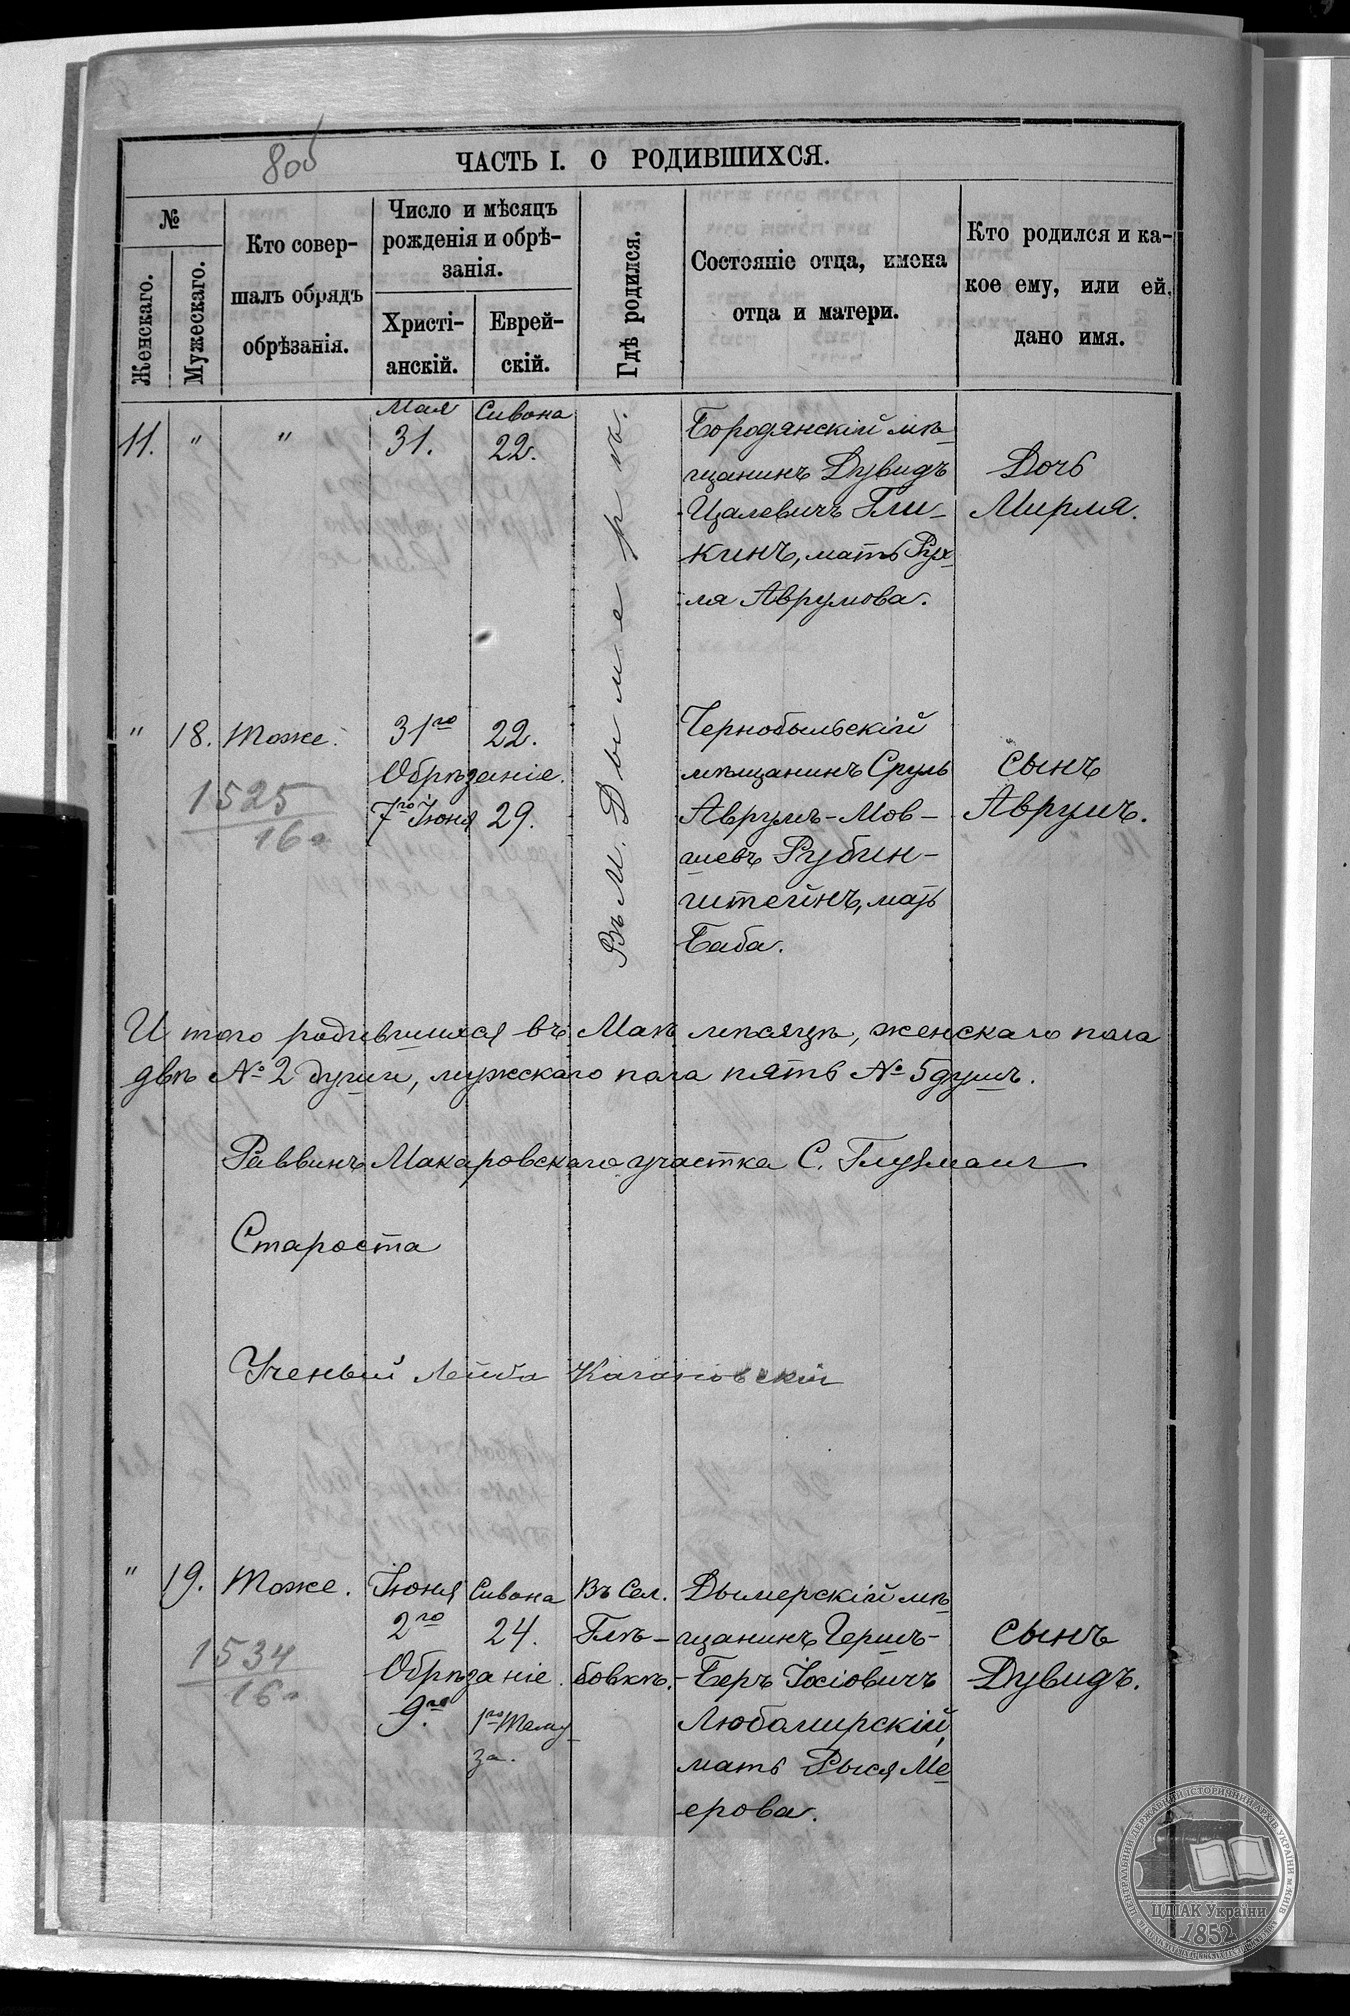 80об
ЧАСТЬ I. О РОДИВШИХСЯ.
№
Женскаго.
Мужескаго.
Кто совер-
шалъ обрядъ
обрѣзанія.
Число и мѣсяцъ
рожденія и обрѣ-
занія.
Христі-
анскій.
Еврей-
скій.
Гдѣ родился.
Состояніе отца, имена
отца и матери.
Кто родился и ка-
кое ему, или ей,
дано имя.
Мая Сивана
11. " " 31. 22.
Въ М. Дымеркѣ.
Бородянскій мѣ-
щанинъ Дувидъ
Цалевичъ Гли-
кинъ, мать Рух-
ля Аврумова.
Дочь
Мирля.
" 18. Тоже. 31го 22.
Обрѣзаніе.
7го Іюня 29.
1525
16а
Чернобыльскій
мѣщанинъ Сруль
Аврумъ-Мов-
шевъ Рубин-
штейнъ, мать
Баба.
сынъ
Аврумъ.
И того родившихся въ Маѣ мѣсяцѣ, женскаго пола
двѣ № 2 души, мужскаго пола пять № 5 душъ.
Раввинъ Макаровскаго участка С. Глузманъ
Староста
Ученый Лейба Кагановскій
" 19. Тоже. Іюня Сивана
2го 24.
Обрѣзаніе.
9го 1го Таму-
за.
1534
16а
Въ Сел.
Глѣ-
бовкѣ.
Дымерскій мѣ-
щанинъ Гершъ-
-Беръ Іосіовичъ
Любомирскій,
мать Рыся Ме-
ерова.
сынъ
Дувидъ.
ЦЕНТРАЛЬНИЙ ДЕРЖАВНИЙ ІСТОРИЧНИЙ АРХІВ УКРАЇНИ м. КИЇВ
ЦДІАК України
1852